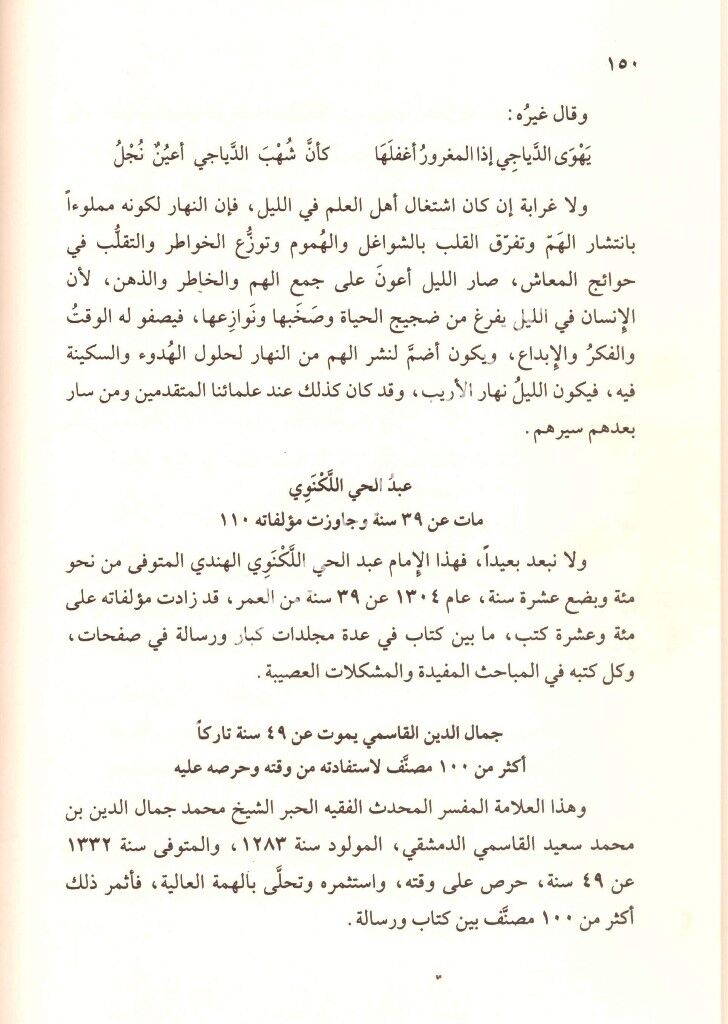 ١٥٠
وقال غيرُه:
يَهْوَى الدَّياجِي إذا المغرورُ أغفلَهَا كأنَّ شُهْبَ الدَّياجي أعيُنٌ نُجْلُ
ولا غرابة إن كان اشتغال أهل العلم في الليل، فإن النهار لكونه مملوءاً
بانتشار الهَمّ وتفرّق القلب بالشواغل والهُموم وتوزُّع الخواطر والتقلُّب في
حوائج المعاش، صار الليل أعونَ على جمع الهم والخاطر والذهن، لأن
الإنسان في الليل يفرغ من ضجيج الحياة وصَخَبها ونَوازِعها، فيصفو له الوقتُ
والفكرُ والإبداع، ويكون أضمَّ لنشر الهم من النهار لحلول الهُدوء والسكينة
فيه، فيكون الليلُ نهار الأريب، وقد كان كذلك عند علمائنا المتقدمين ومن سار
بعدهم سيرهم.
عبدُ الحي اللَّكْنَوِي
مات عن ٣٩ سنة وجاوزت مؤلفاته ١١٠
ولا نبعد بعيداً، فهذا الإمام عبد الحي اللَّكْنَوِي الهندي المتوفى من نحو
مئة وبضع عشرة سنة، عام ١٣٠٤ عن ٣٩ سنة من العمر، قد زادت مؤلفاته على
مئة وعشرة كتب، ما بين كتاب في عدة مجلدات كبار ورسالة في صفحات،
وكل كتبه في المباحث المفيدة والمشكلات العصيبة.
جمال الدين القاسمي يموت عن ٤٩ سنة تاركاً
أكثر من ١٠٠ مصنَّف لاستفادته من وقته وحرصه عليه
وهذا العلامة المفسر المحدث الفقيه الحبر الشيخ محمد جمال الدين بن
محمد سعيد القاسمي الدمشقي، المولود سنة ١٢٨٣، والمتوفى سنة ١٣٣٢
عن ٤٩ سنة، حرص على وقته، واستثمره وتحلَّى بالهمة العالية، فأثمر ذلك
أكثر من ١٠٠ مصنَّف بين كتاب ورسالة.